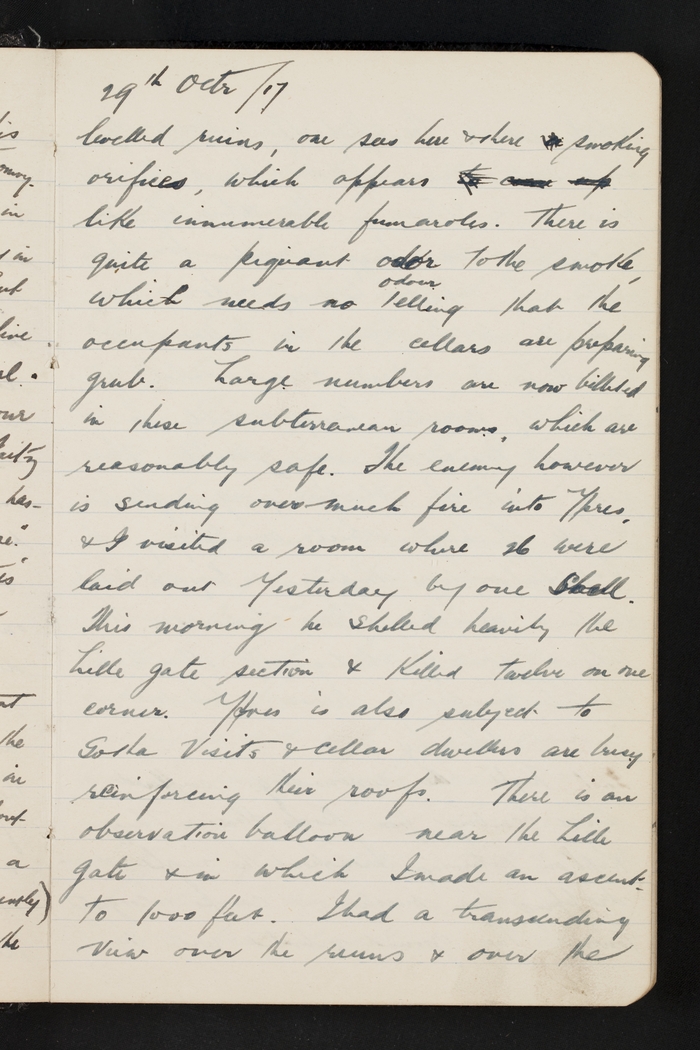 29th Octr /17
levelled ruins, one sees here & there smoking
orifices, which appears to come up
like innumerable fumaroles. There is
quite a piquant odor to the smoke,
odour
which needs no telling that the
occupants in the cellars are preparing
grub. Large numbers are now billeted
in these subterranean rooms, which are
reasonably safe. The enemy however
is sending over much fire into Ypres,
& I visited a room where 26 were
laid out Yesterday by one Shell.
This morning he shelled heavily the
Lille gate section & Killed twelve on one
corner. Ypres is also subject to
Gotha Visits & cellar dwellers are busy
reinforcing their roofs. There is an
observation balloon near the Lille
gate & in which I made an ascent
to 1000 feet. I had a transcending
view over the ruins & over the